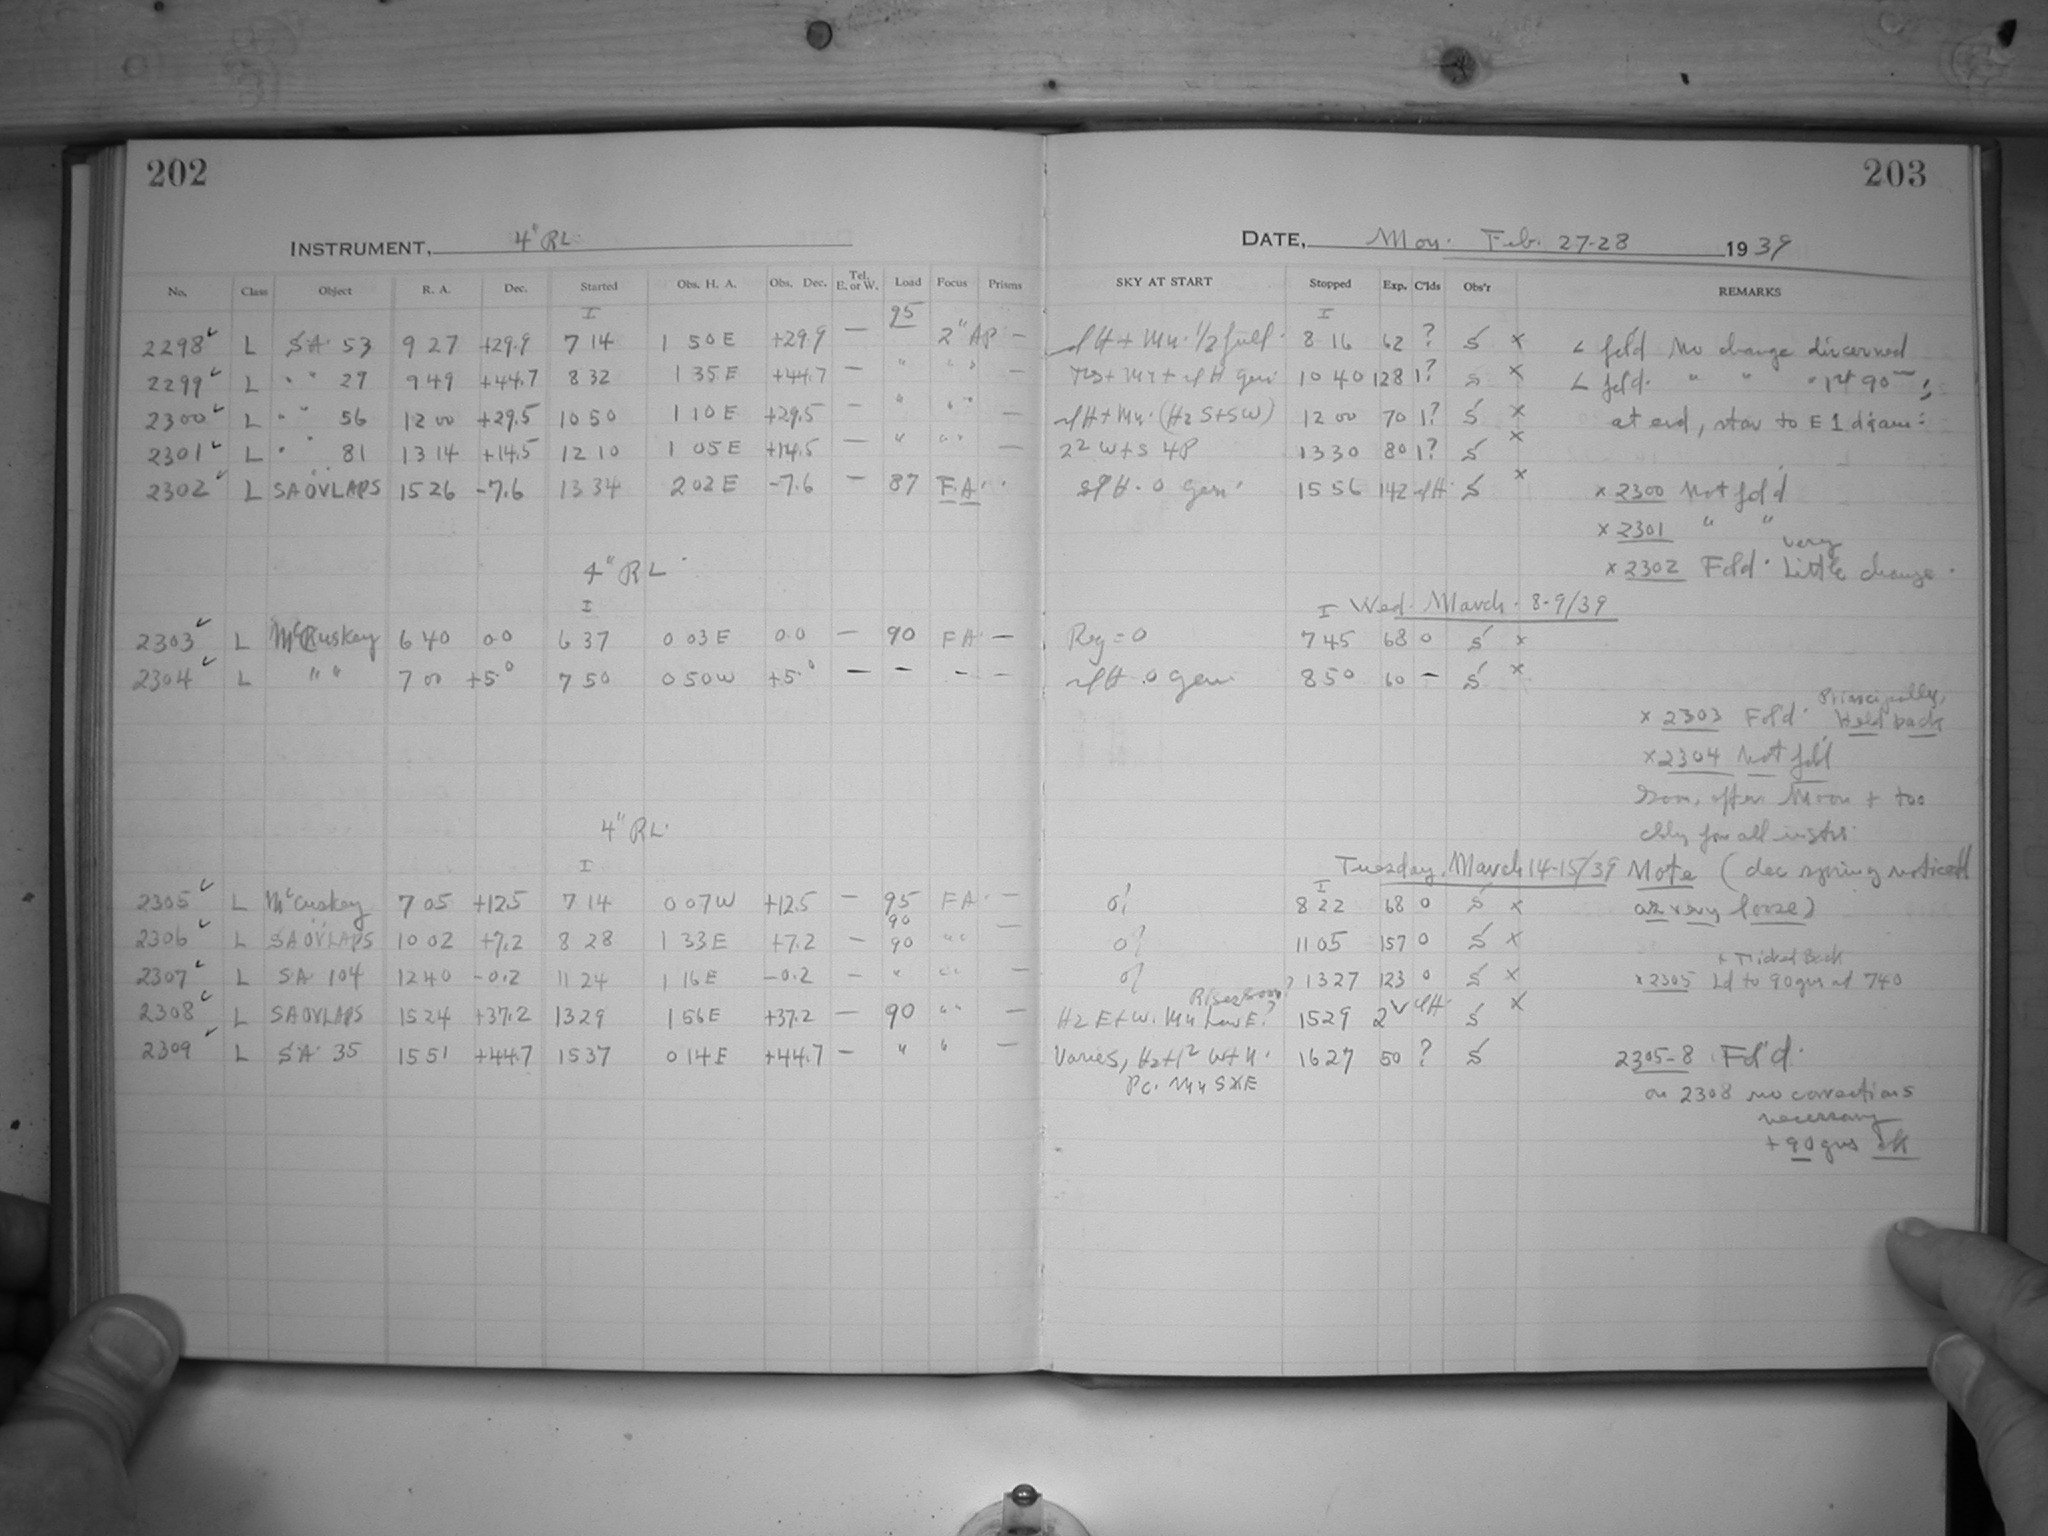 202
203
INSTRUMENT, 4" RL.
DATE, Mon. Feb. 27-28 1939
No. Class Object R. A. Dec. Started Obs. H. A. Obs. Dec. Tel. E. or W. Load Focus Prisms SKY AT START Stopped Exp. C'lds Obs'r REMARKS
I 95 I
2298 ✓ L SA 53 9 27 +29.9 7 14 1 50 E +29.9 — 2" AP — + Mn. 1/2 full. 8 16 62 ? S x fold No change discerned
2299 ✓ L " " 27 9 49 +44.7 8 32 1 35 E +44.7 — " " " — 10 40 128 1? S x fold. " " " 1st 90
2300 ✓ L " " 56 12 00 +29.5 10 50 1 10 E +29.5 — " " " — + Mn. (Hz S+SW) 12 00 70 1? S x at end, star to E 1 diam.
2301 ✓ L " " 81 13 14 +14.5 12 10 1 05 E +14.5 — " " " — W+S 13 30 80 1? S x
2302 ✓ L SA OVLAPS 15 26 -7.6 13 34 2 02 E -7.6 — 87 F.A. 0 Gen. 15 56 142 S x x 2300 Not fol'd
x 2301 " "
4" RL.
x 2302 Fol'd. very Little change.
I I Wed. March. 8-9/39
2303 ✓ L McCuskey 6 40 0.0 6 37 0 03 E 0.0 — 90 FA. — Reg = 0 7 45 68 0 S x
2304 ✓ L " " 7 00 +5.0 7 50 0 50 W +5.0 — — — — 0 Gen. 8 50 60 — S x
x 2303 Fol'd. Principally, Held back
x 2304 Not fol'd
Moon + too
cldy for all instrs.
4" RL.
I Tuesday, March 14-15/39 Note (dec spring noticed
I
2305 ✓ L McCuskey 7 05 +12.5 7 14 0 07 W +12.5 — 95 FA. — 0 8 22 68 0 S x as very loose)
90
2306 ✓ L SA OVLAPS 10 02 +7.2 8 28 1 33 E +7.2 — 90 " " — 0 11 05 157 0 S x
+ Back
2307 ✓ L SA 104 12 40 -0.2 11 24 1 16 E -0.2 — " " " — 0 13 27 123 0 S x x 2305 Ld to 90 gms at 7 40
2308 ✓ L SA OVLAPS 15 24 +37.2 13 29 1 56 E +37.2 — 90 " " — Hz E+W. Mn Low E? 15 29 S x
2309 ✓ L SA 35 15 51 +44.7 15 37 0 14 E +44.7 — " " — Varies, W+N. 16 27 50 ? S 2305-8 Fol'd.
Pc. Mn SXE
on 2308 no corrections
necessary
+ 90 gms ok